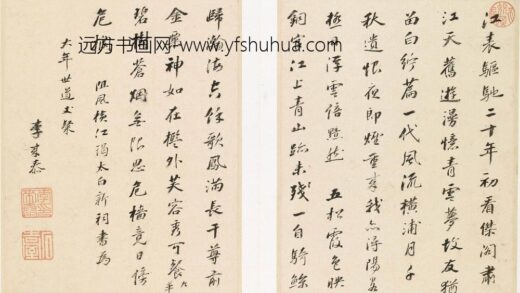 江表驅馳二十年初看傑閣肅
江天舊遊漫憶青雲夢故友猶
留白紵篇一代風流橫浦月千
秋遺恨夜郎煙重來我亦潯陽客
極目浮雲倍黯然 五松霞色映
銅官江上青山跡未殘一自騎鯨
歸瀚海空餘歌鳳滿長干尊前
金粟神如在檻外芙容秀可餐九
碧樹蒼烟無限思危檣竟日倚
危 阻風橫江謁太白新祠書為
大年世道
李來泰
远方书画网-www.yfshuhua.com